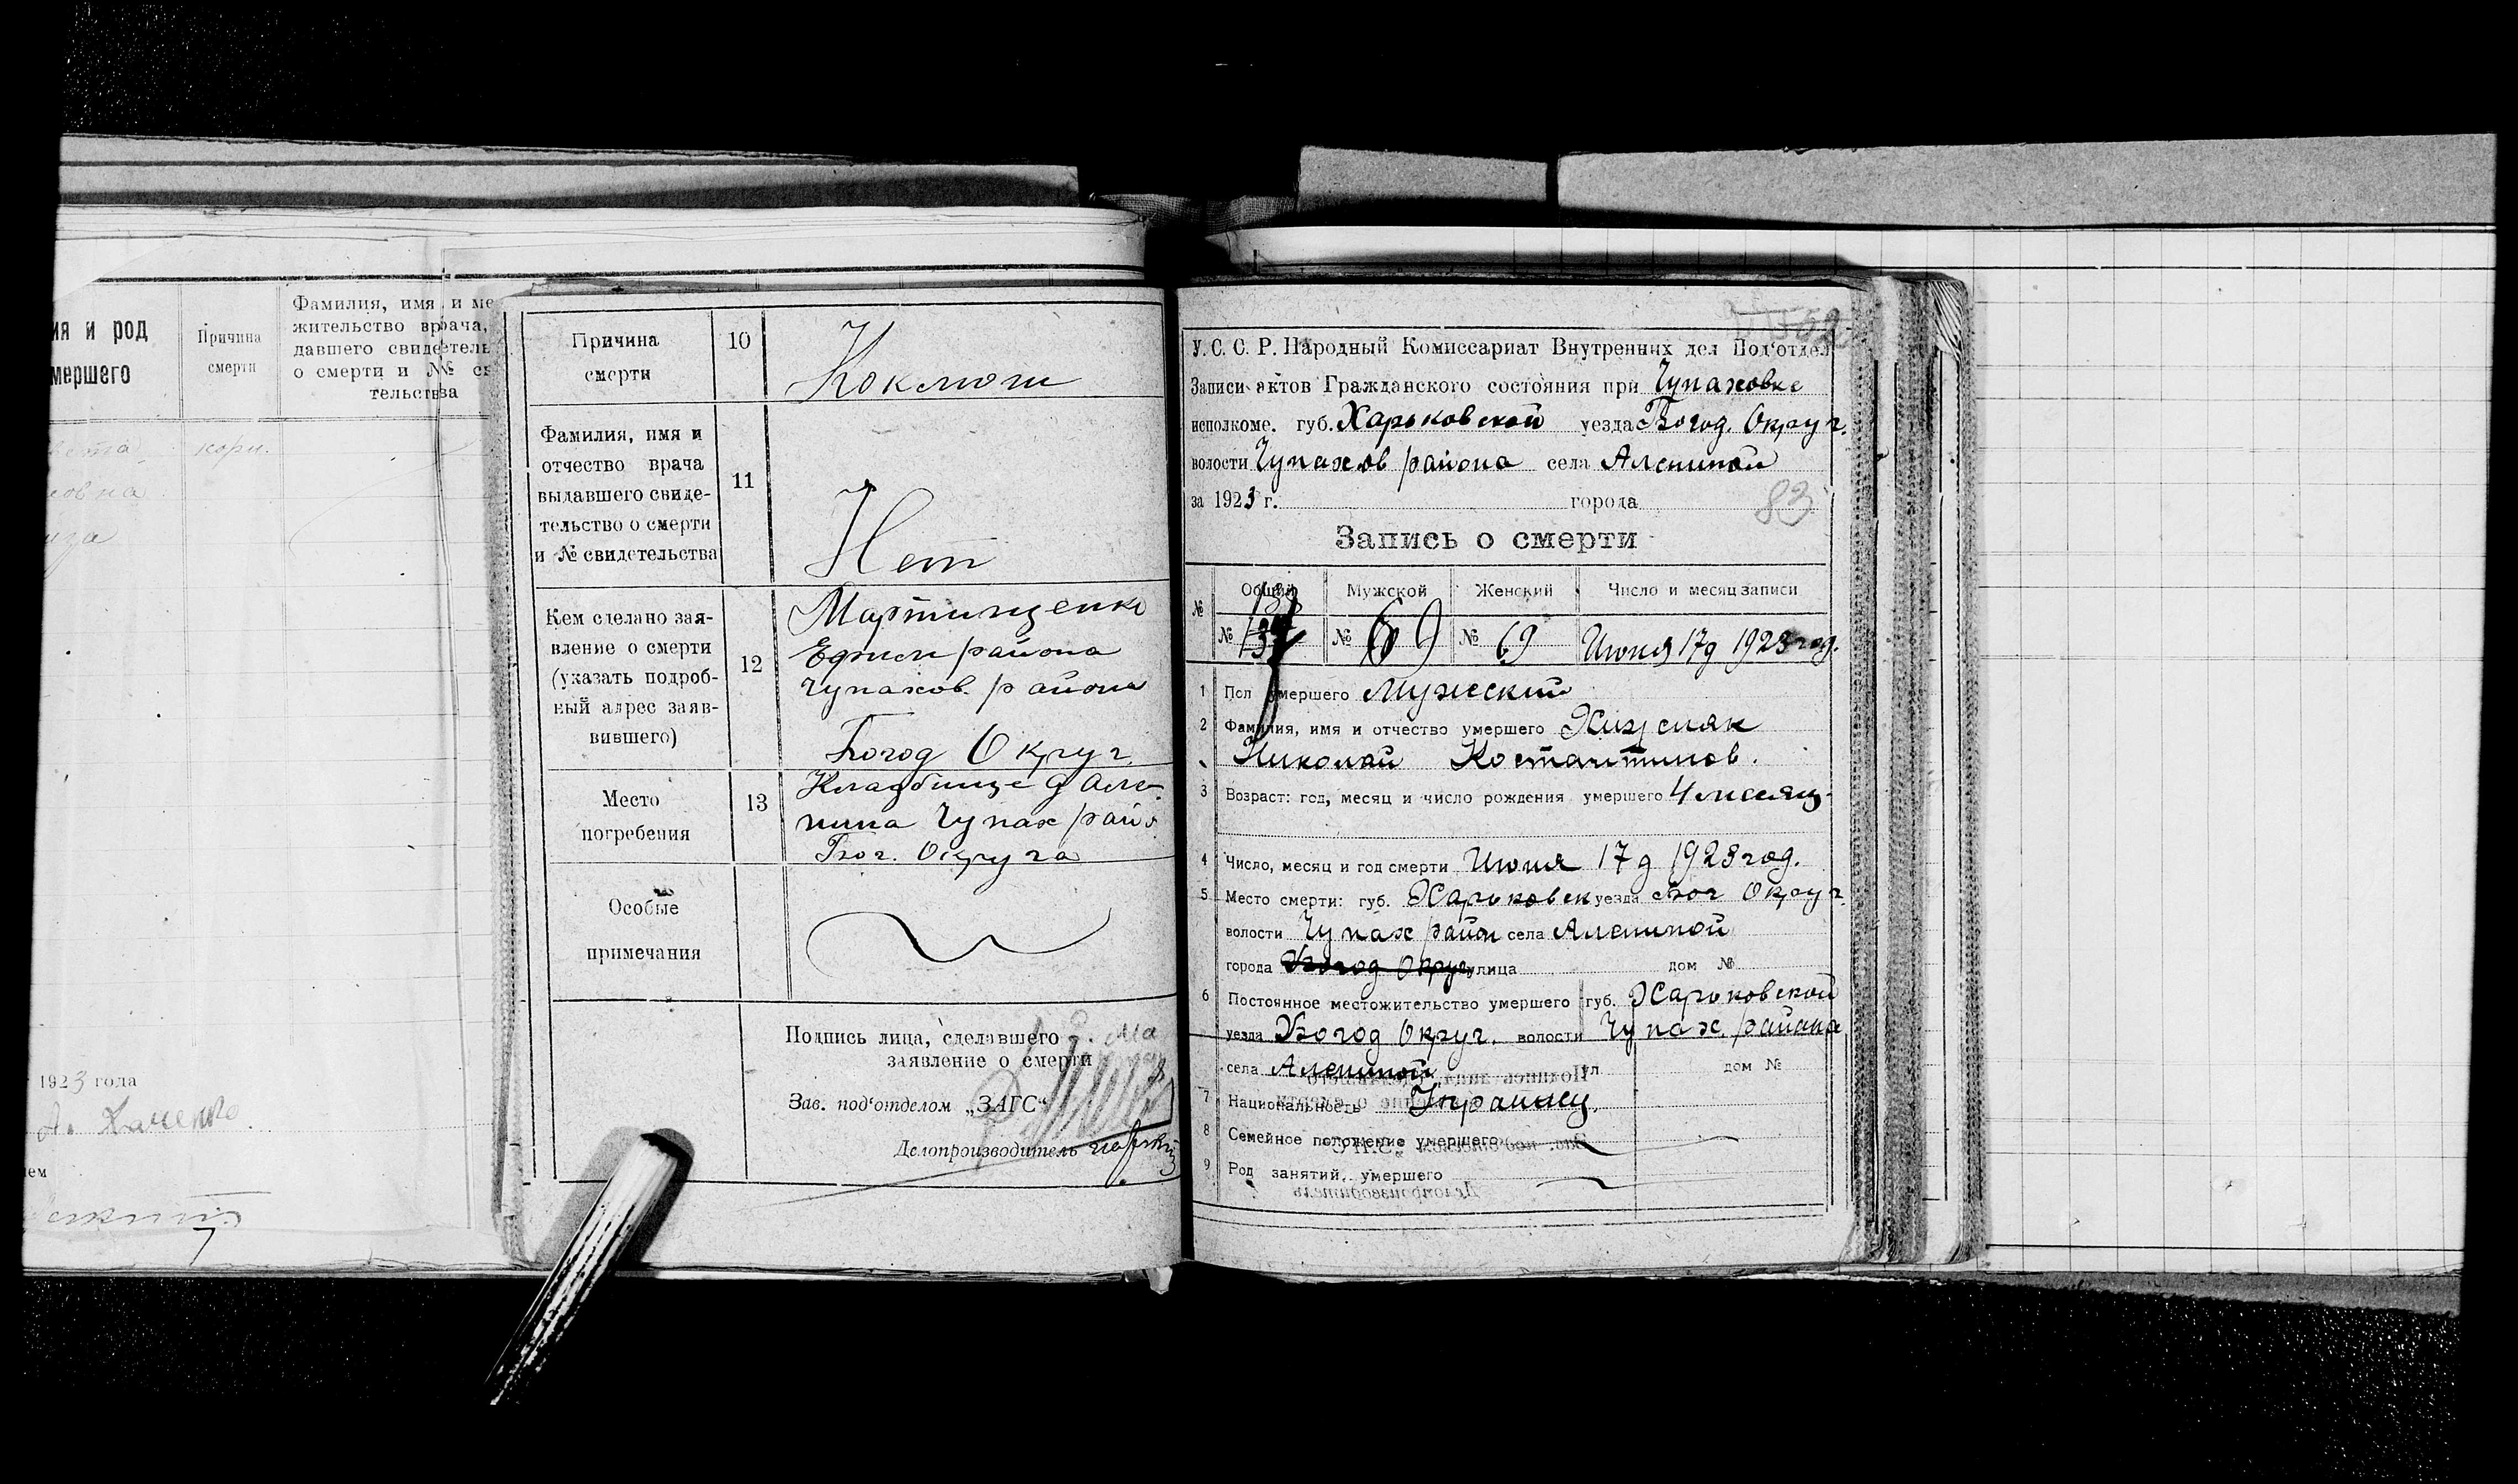 ия и род
мершего
Причина
смерти
Фамилия, имя и ме
жительство врача,
давшего свидетель
о смерти и №№ св
тельства
кори.
1923 года
7
Причина
смерти
10
Коклюш
Фамилия, имя и
отчество врача
выдавшего свиде-
тельство о смерти
и № свидетельства
11
Нет
Кем сделано зая-
вление о смерти
(указать подроб-
ный адрес заяв-
вившего)
12
Мартинценко
Ефим района
Чупахов. района
Богод Округ.
Место
погребения
13
Кладбище д Але-
нина Чупах рай
Бог. Округа
Особые
примечания
Подпись лица, сделавшего
заявление о смерти
Зав. под'отделом „ЗАГС“
Делопроизводитель
У. С. С. Р. Народный Комиссариат Внутренних дел Под'отдел
Записи актов Гражданского состояния при Чупаховке
исполкоме. губ. Харьковской уезда Богод. Округ.
волости Чупахов района села Алениной
за 1923 г. города
83
Запись о смерти
№ Общий Мужской Женский Число и месяц записи
№ № 69 № 69 Июня 17д 1923 год.
1 Пол умершего Мужеский
2 Фамилия, имя и отчество умершего Хижсняк
Николай Костантинов.
3 Возраст: год, месяц и число рождения умершего 4 месяц
4 Число, месяц и год смерти Июня 17 д 1923 год.
5 Место смерти: губ. Харьковск уезда Бог Округ.
волости Чупах район села Алениной
города Богод Округ улица дом №
6 Постоянное местожительство умершего губ. Харьковской
уезда Богод Округ. волости Чупах. района
села Алениной ул дом №
7 Национальность Украинец
8 Семейное положение умершего
9 Род занятий, умершего